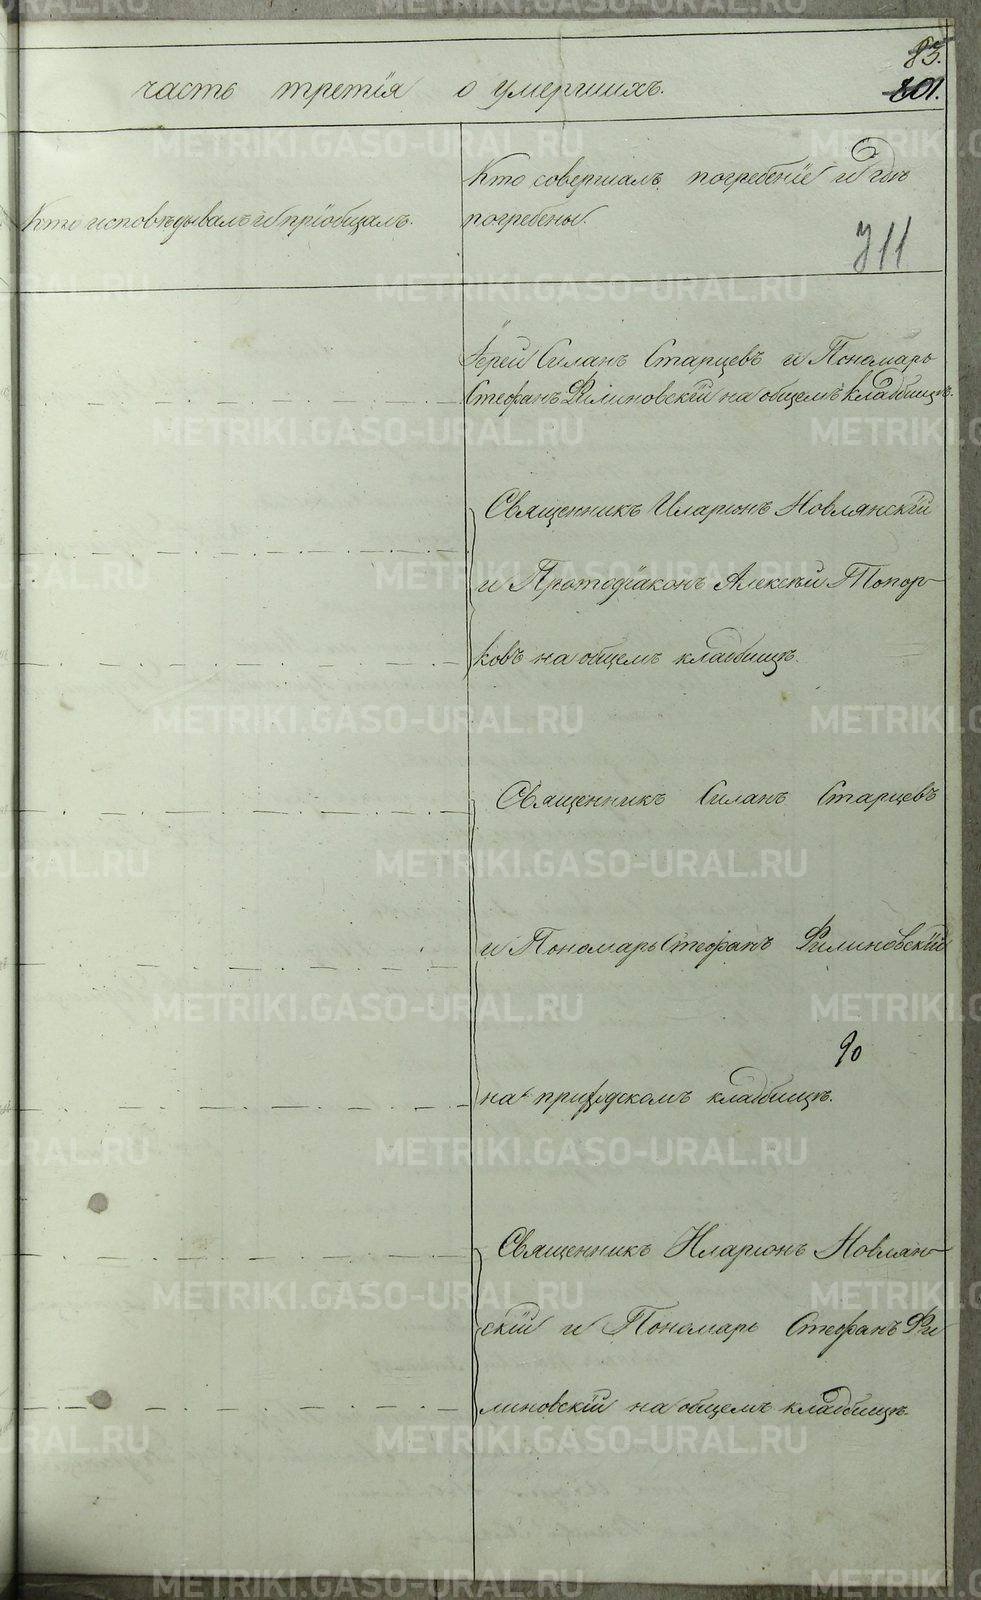 83.
801.
часть третія о умершихъ.
Кто исповѣдывалъ и пріобщалъ.
Кто совершалъ погребеніе и гдѣ
погребены.
311
Іерей Силанъ Старцевъ и Пономарь
Стефанъ Филиновскій на общемъ кладбищѣ.
Священникъ Иларіонъ Новлянскій
и Протодіаконъ Алексѣй Топор-
ковъ на общемъ кладбищѣ.
Священникъ Силанъ Старцевъ
и Пономарь Стефанъ Филиновскій
90
на приходскомъ кладбищѣ.
Священникъ Иларіонъ Новлян-
скій и Пономарь Стефанъ Фи
линовскій на общемъ кладбищѣ.
METRIKI.GASO-URAL.RU